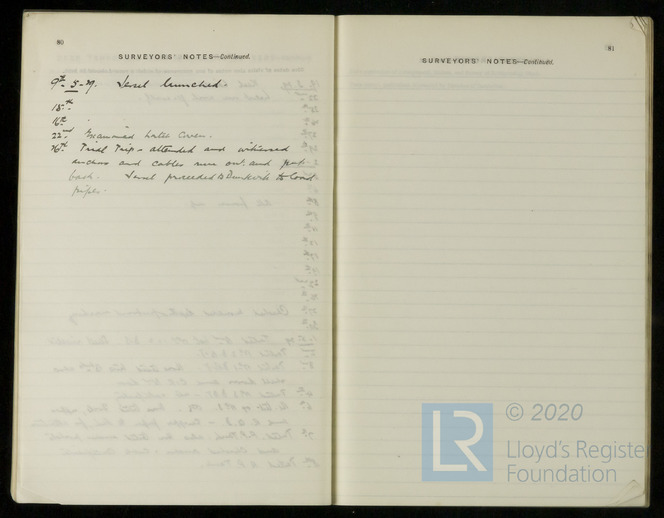 80
SURVEYORS' NOTES—Continued.
9th. 5. 29. Vessel launched.
15th
16th
22nd Examined Hatch Covers.
26th Trial Trip - attended and witnessed
anchors and cables run out and put
back. Vessel proceeded to Dunkirk to load
81
SURVEYORS' NOTES—Continued.
© 2020
LR
Lloyd's Register
Foundation